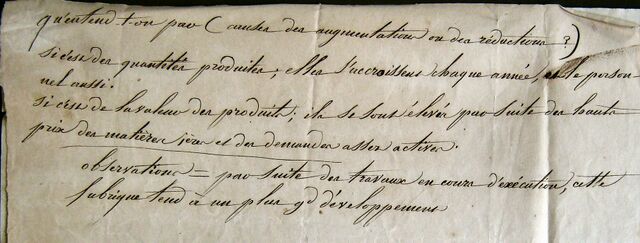 qu'entend-t-on par (causes des augmentations ou des réductions ?)
si c'est des quantités produites ; elles s'accroissent chaque année, et le person
nel aussi.
si c'est de la valeur des produits ; ils se sont élevés par suite des hauts
prix des matières 1ères et des demandes assez actives.
observations = par suite des travaux en cours d'exécution, cette
fabrique tend à un plus gd développement